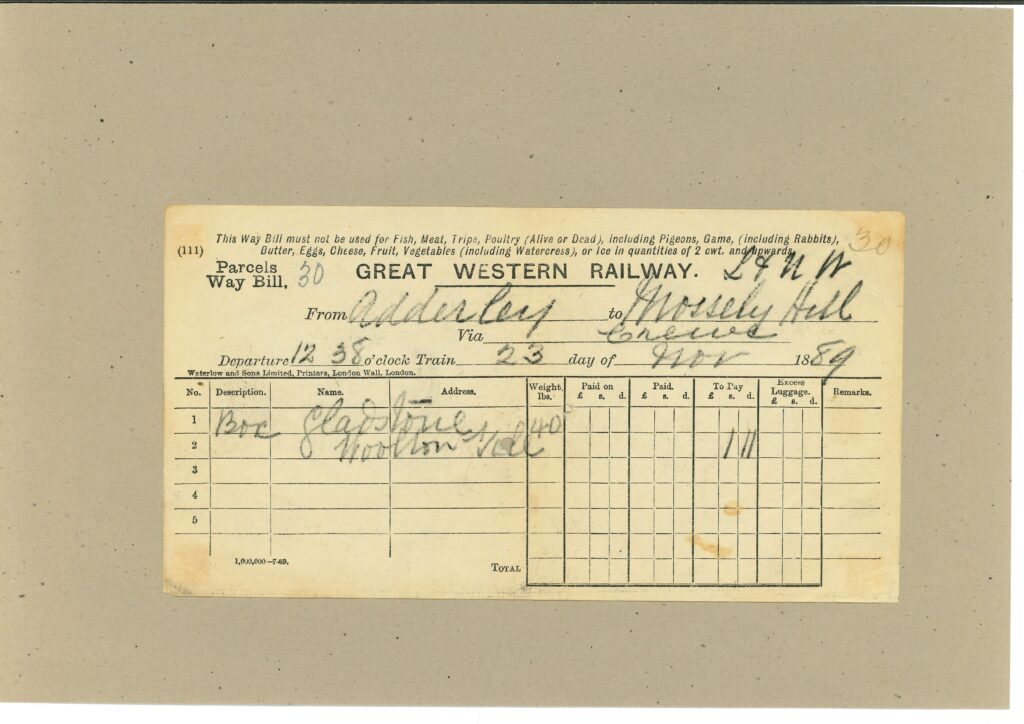 This Way Bill must not be used for Fish, Meat, Tripe, Poultry (Alive or Dead), including Pigeons, Game, (including Rabbits),
(111) Butter, Eggs, Cheese, Fruit, Vegetables (including Watercress), or Ice in quantities of 2 cwt. and upwards. 30
Parcels Way Bill. 30 GREAT WESTERN RAILWAY. L & N W
From Adderley to Mossely Hill
Via Crewe
Departure 12 38 o'clock Train 23 day of Nov 1889
Waterlow and Sons Limited, Printers, London Wall, London.
No. Description. Name. Address. Weight. lbs. Paid on £ s. d. Paid. £ s. d. To Pay £ s. d. Excess Luggage. £ s. d. Remarks.
1 Box Gladstone 40
2 Woolton 1 11
3
4
5
1,000,000—7-89. TOTAL